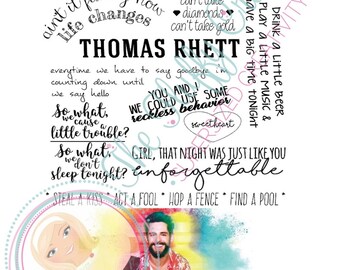 ain't it funny how
life changes
can't take
diamonds
can't take gold
DRINK A LITTLE BEER
PLAY A LITTLE MUSIC &
HAVE A BIG TIME TONIGHT
THOMAS RHETT
everytime we have to say goodbye im
counting down until
we say hello
YOU AND I
WE COULD USE SOME
reckless behavior
So what,
we cause a
little trouble?
sweetheart
So what,
we don't
sleep tonight?
GIRL, THAT NIGHT WAS JUST LIKE YOU
unforgettable
* STEAL A KISS * ACT A FOOL * HOP A FENCE * FIND A POOL *